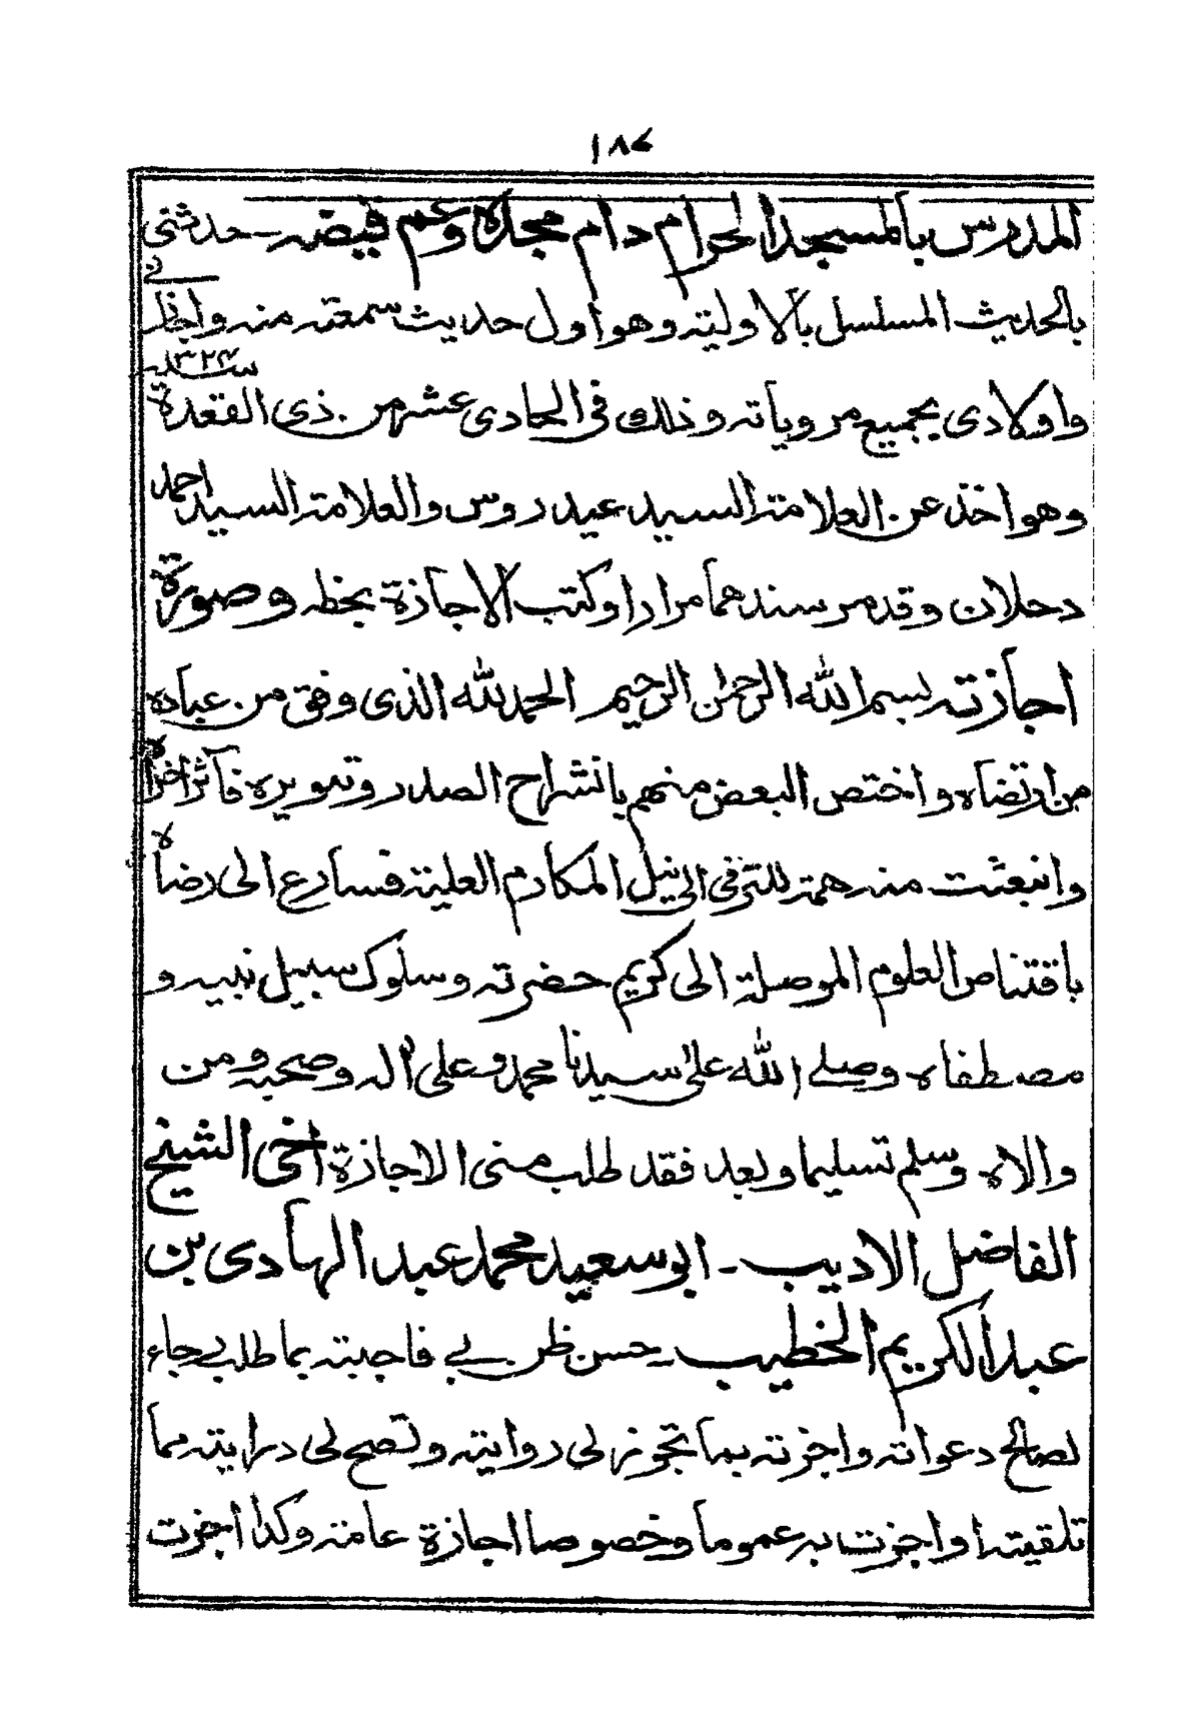 ١٨٧
المدرس بالمسجد الحرام دام مجده وعم فيضه - حدثنى
بالحديث المسلسل بالاولية وهو اول حديث سمعته منه واجازنى
واولادى بجميع مروياته وذلك فى الحادى عشر من ذى القعدة سنة ١٣٢٤
وهو اخذ عن العلامة السيد عيدروس والعلامة السيد احمد
دحلان وقد مر سندهما مرارا وكتب الاجازة بخطه وصورة
اجازته بسم الله الرحمن الرحيم الحمد لله الذى وفق من عباده
من ارتضاه واختص البعض منهم بانشراح الصدر وتنويره فآثر اخراه
وانبعثت منه همة للترقى الى نيل المكارم العلية فسارع الى رضاه
باقتناص العلوم الموصلة الى كريم حضرته وسلوك سبيل نبيه و
مصطفاه وصلى الله على سيدنا محمد وعلى اله وصحبه ومن
والاه وسلم تسليما وبعد فقد طلب منى الاجازة اخى الشيخ
الفاضل الاديب - ابو سعيد محمد عبد الهادى بن
عبد الكريم الخطيب - حسن ظن بى فاجبته بما طلب رجاء
لصالح دعواته واجزته بما تجوز لى روايته وتصح لى درايته مما
تلقيته او اجزت به عموما وخصوصا اجازة عامة وكذا اجزت